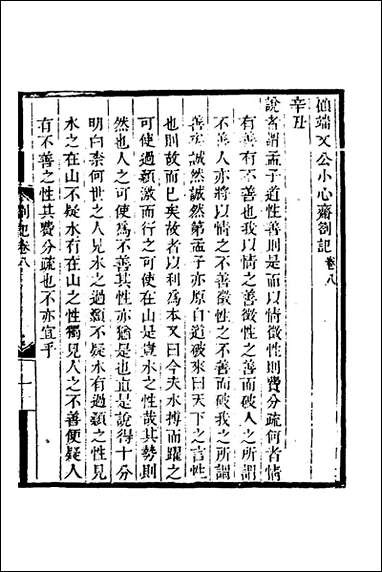 顧端文公小心齋劄記卷八
辛丑
說者謂孟子道性善則是而以情徵性則費分疏何者情
有善有不善也我以情之善徵性之善而破人之所謂
不善人亦將以情之不善徵性之不善而破我之所謂
善矣誠然誠然第孟子亦原自道破來曰天下之言性
也則故而已矣故者以利爲本又曰今夫水搏而躍之
可使過顙激而行之可使在山是豈水之性哉其勢則
然也人之可使爲不善其性亦猶是也直是說得十分
明白柰何世之人見水之過顙不疑水有過顙之性見
水之在山不疑水有在山之性獨見人之不善便疑人
有不善之性其費分疏也不亦宜乎
劄記卷八
一